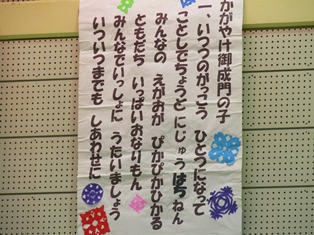 かがやけ御成門の子
一、いつつのがっこう ひとつになって
ことしでちょうど にじゅうはちねん
みんなの えがおが ぴかぴかひかる
ともだち いっぱいおなりもん
みんなでいっしょに うたいましょう
いついつまでも しあわせに